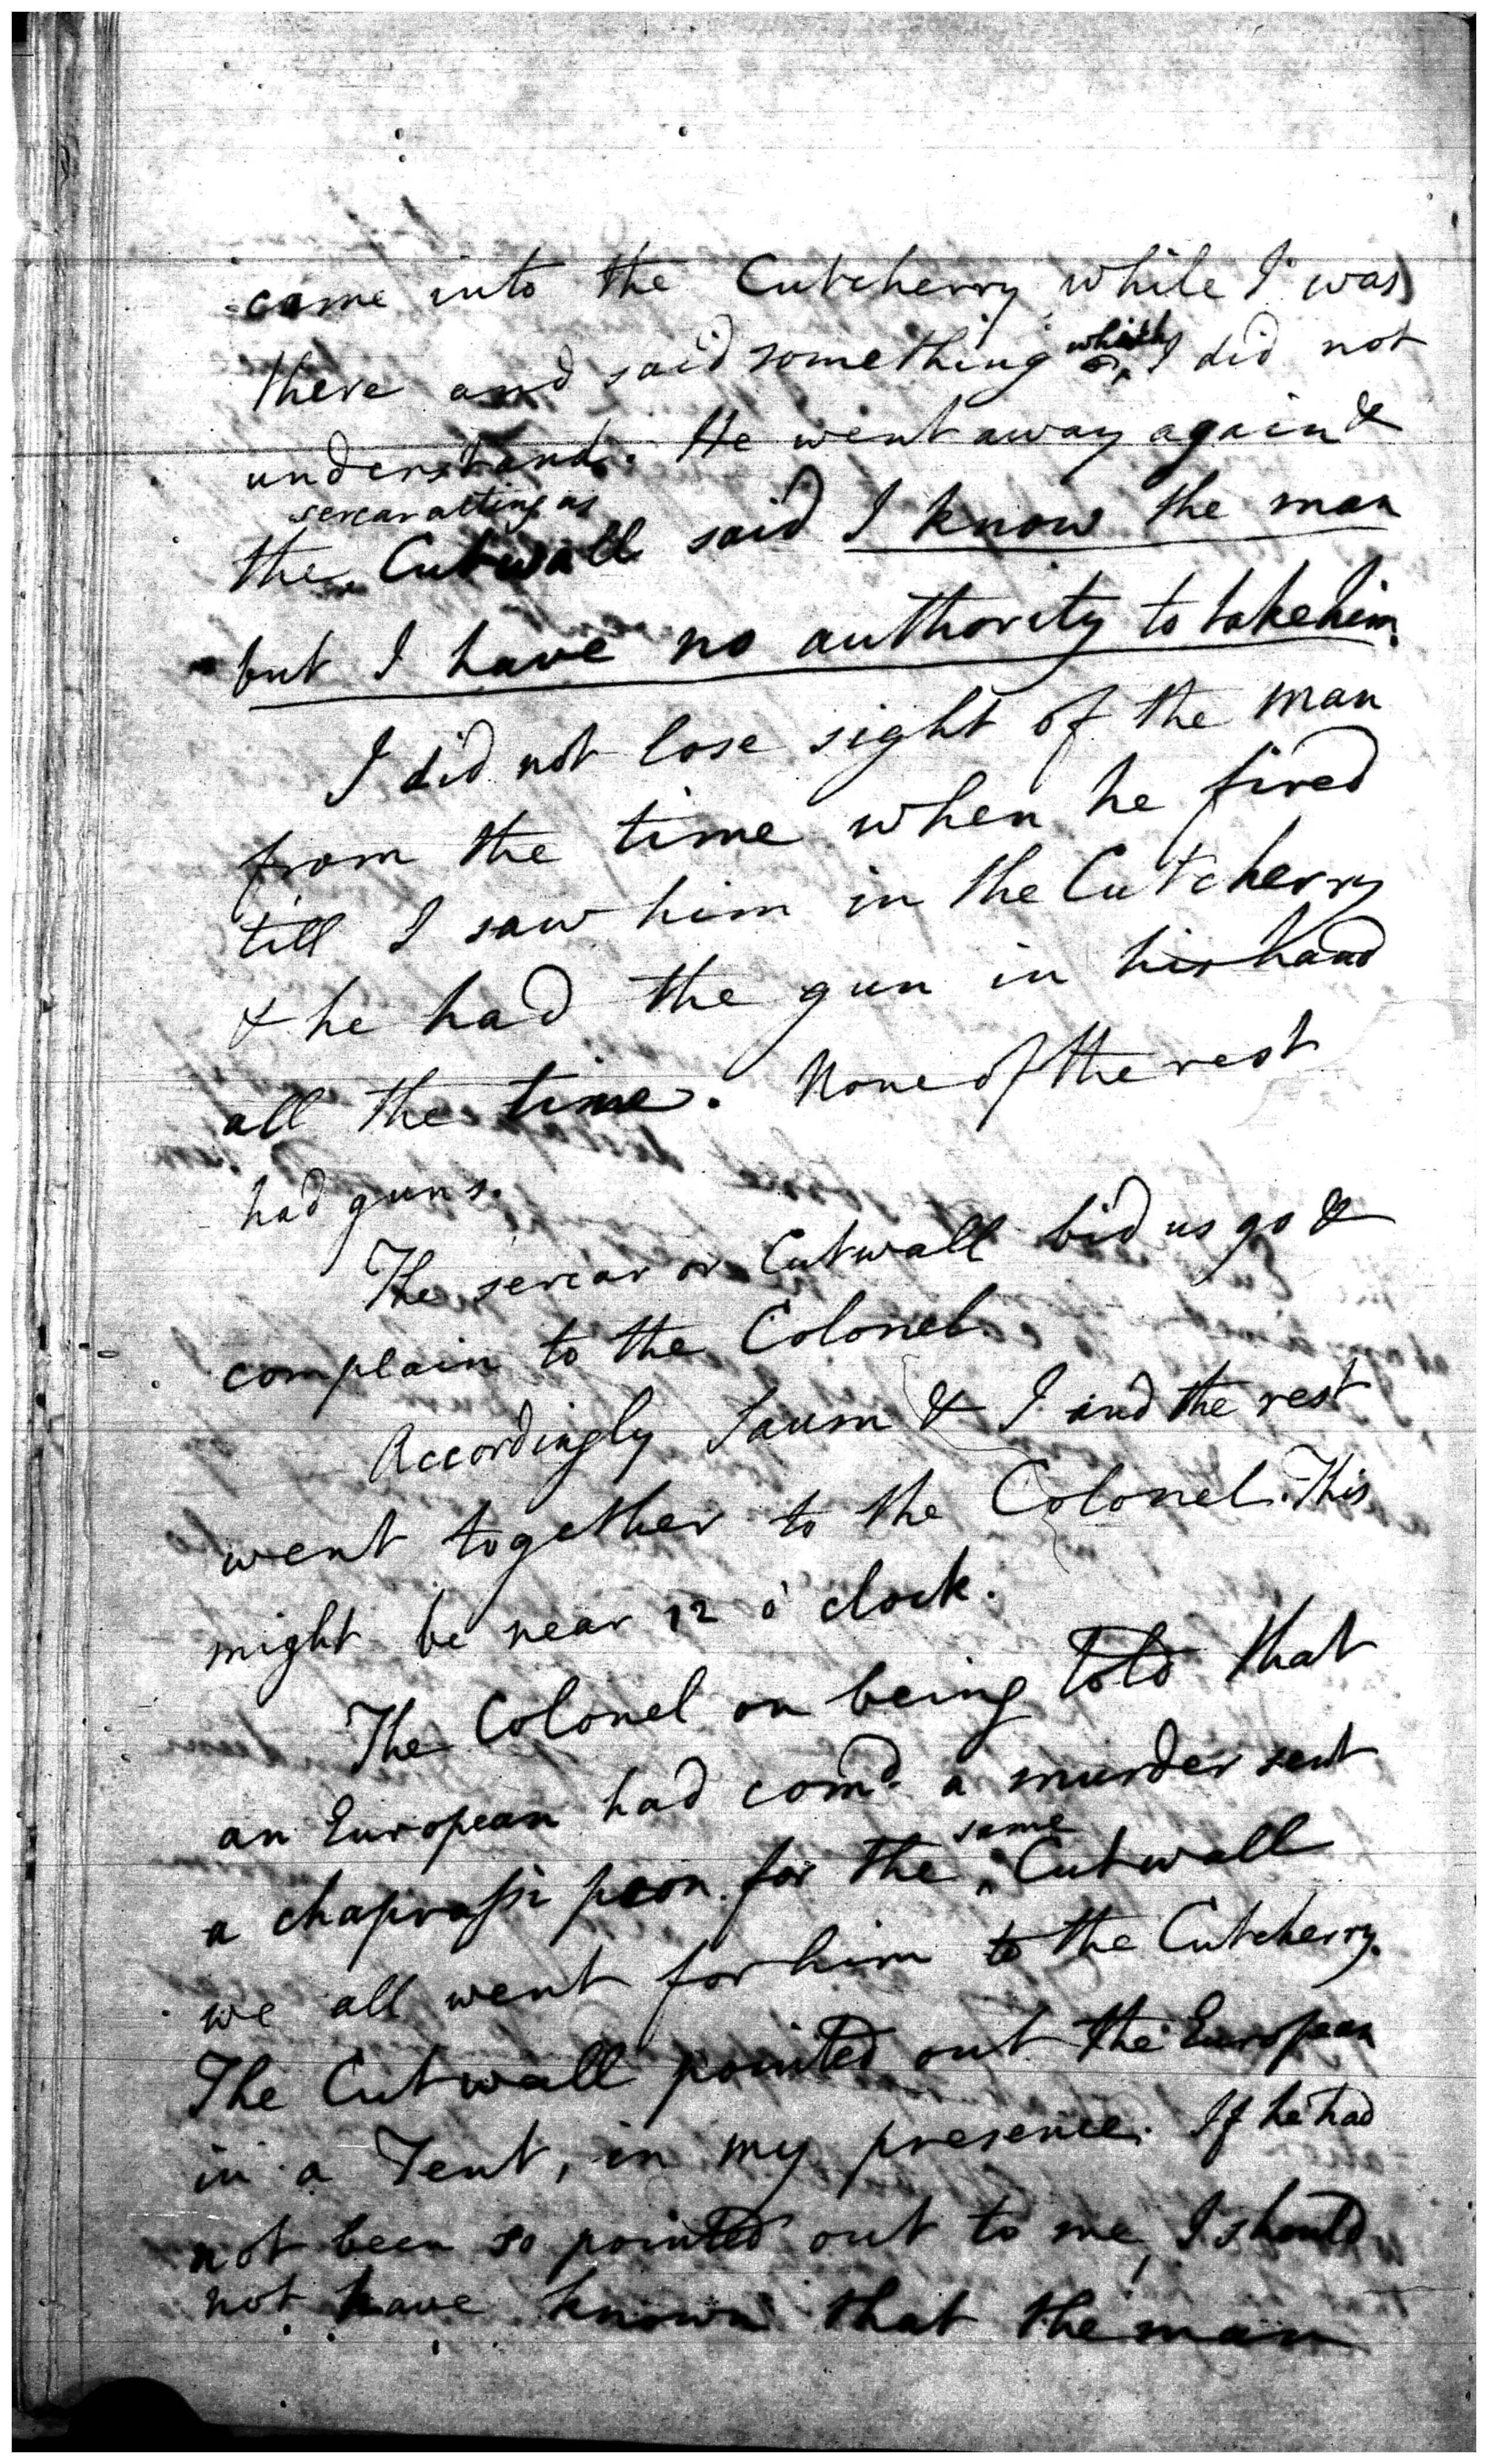 came into the Cutcherry while I was
there and said something which I did not
understand. He went away again &
sercar acting as
the Cutwall said I know the man
but I have no authority to take him.
I did not lose sight of the man
from the time when he fired
till I saw him in the Cutcherry
& he had the gun in his hand
all the time. None of the rest
had guns.
The sercar or Cutwall bid us go &
complain to the Colonel.
Accordingly Saum & I and the rest
went together to the Colonel. This
might be near 12 o'clock.
The Colonel on being told that
an European had comd. a murder sent
a chaprassi peon for the same Cutwall
we all went for him to the Cutcherry.
The Cutwall pointed out the European
in a Tent, in my presence. If he had
not been so pointed out to me, I should
not have known that the man